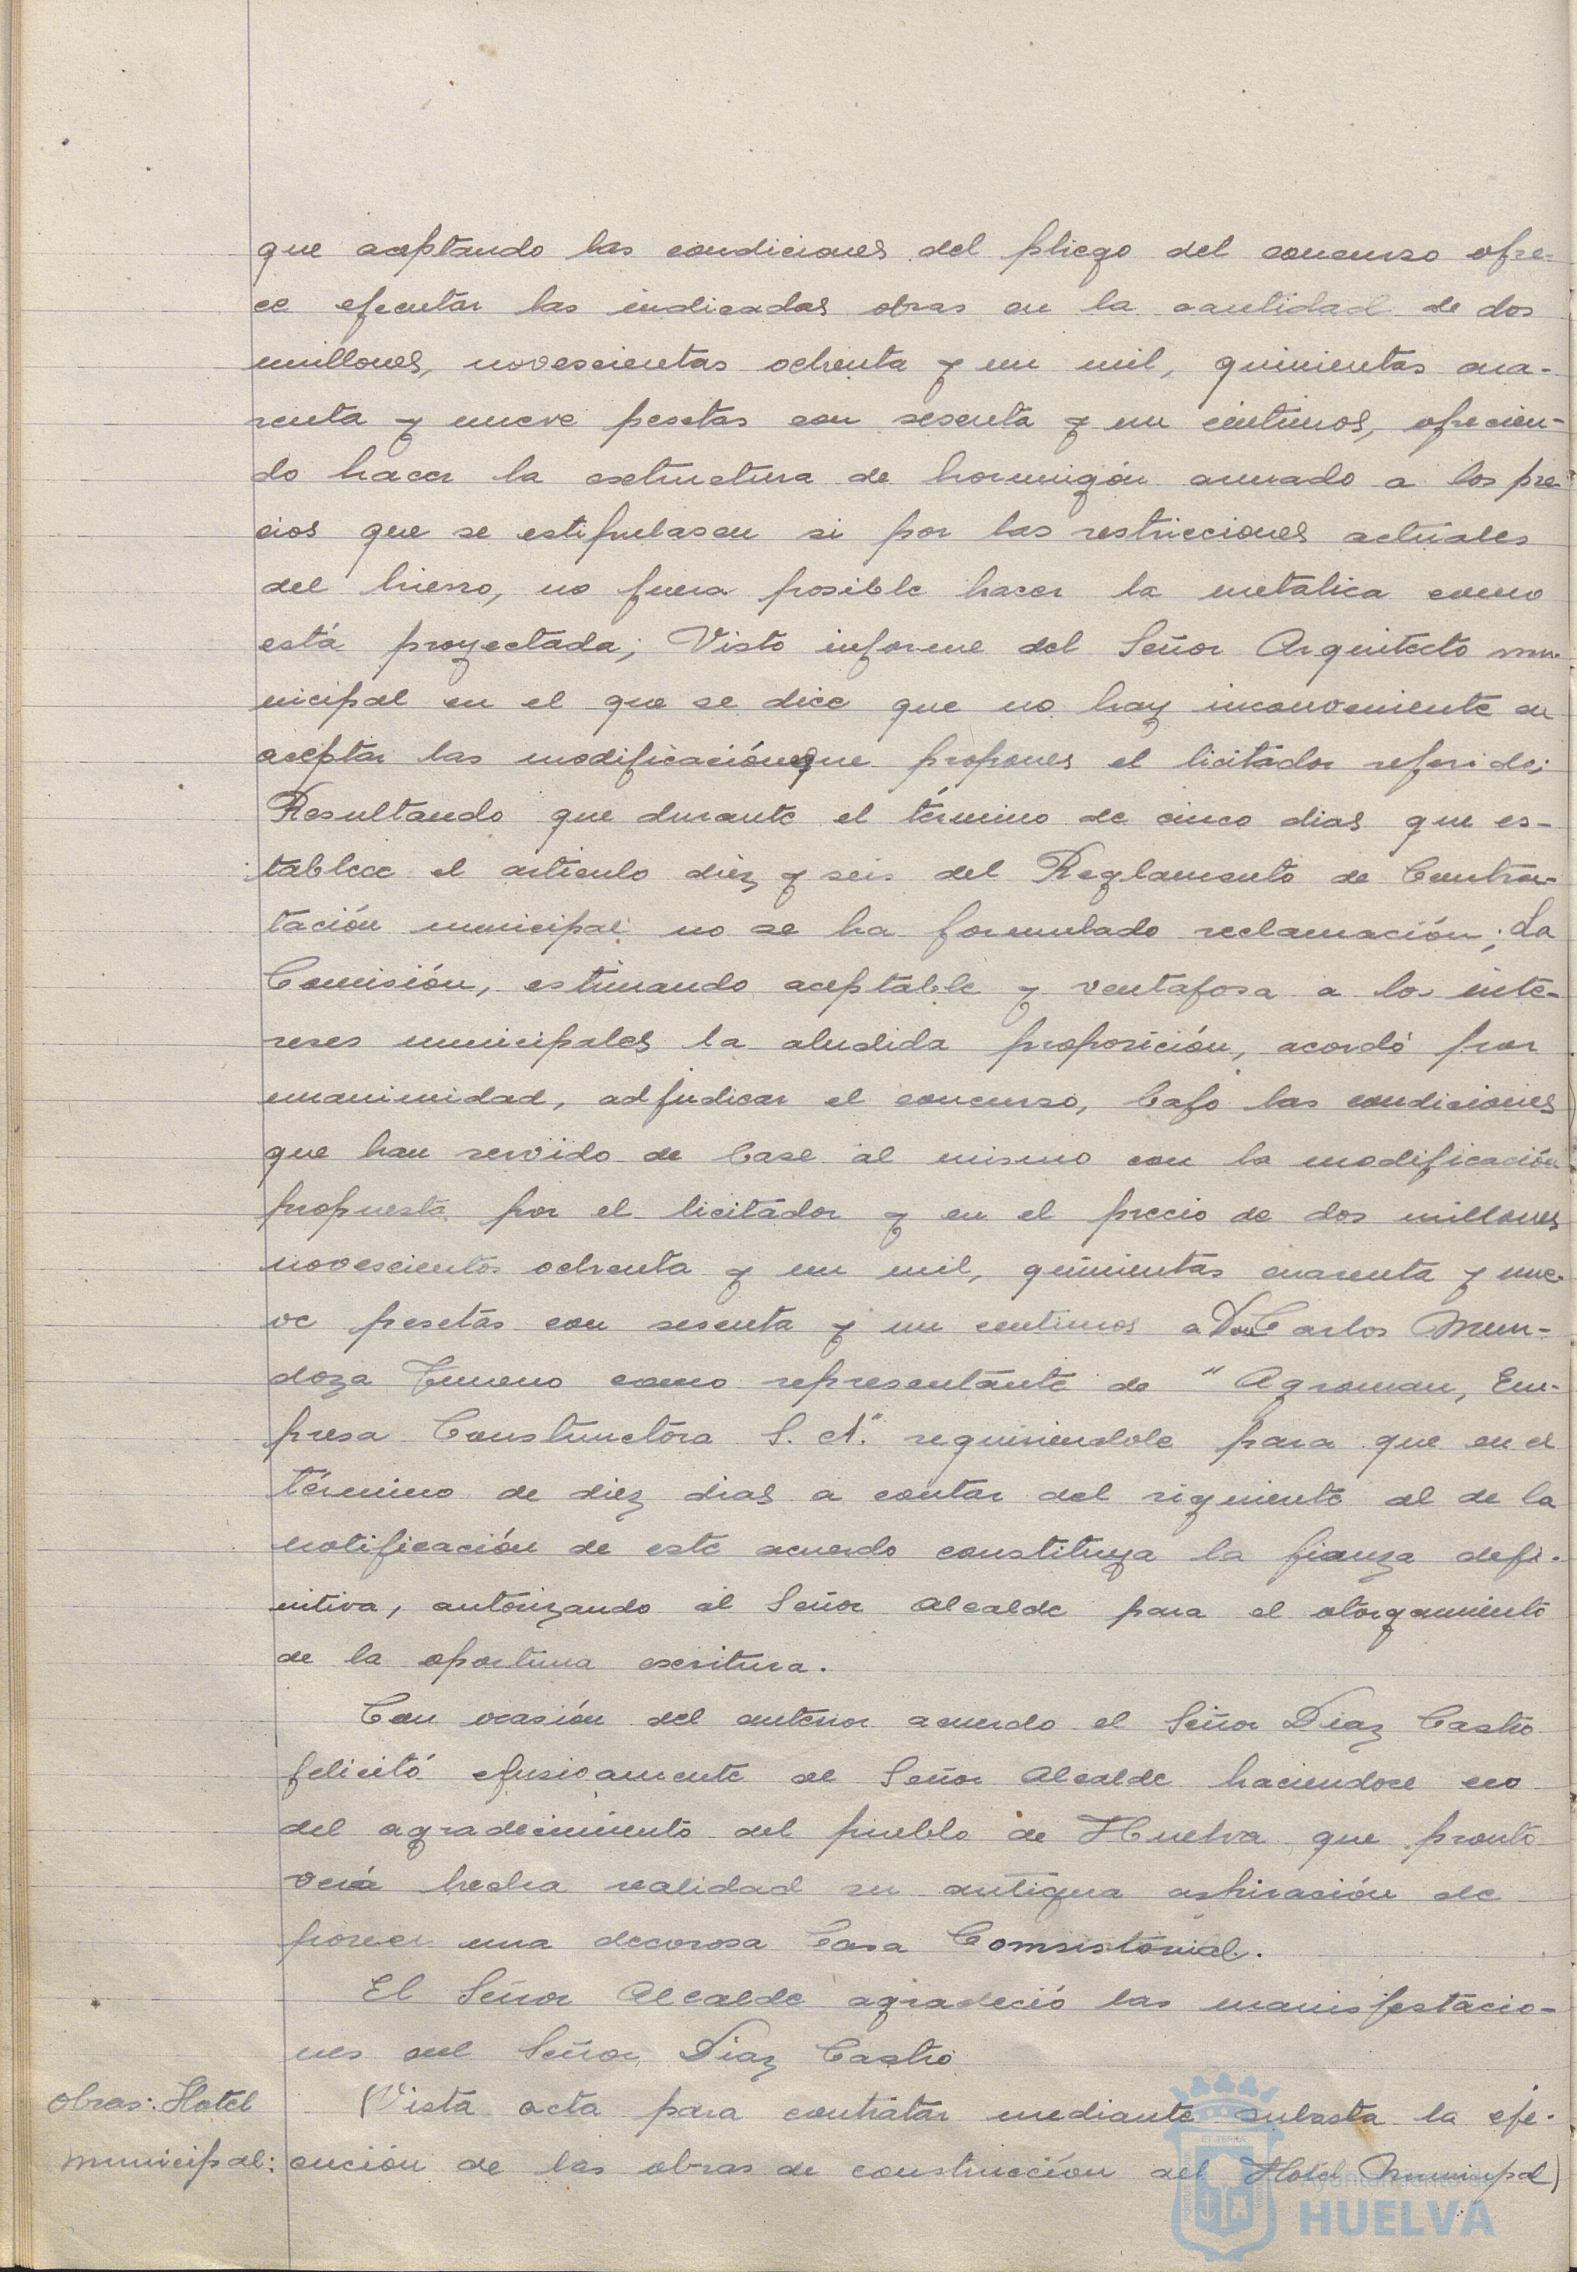 que aceptando las condiciones del pliego del concurso ofre-
ce ejecutar las indicadas obras en la cantidad de dos
millones, novescientas ochenta y un mil, quinientas cua-
renta y nueve pesetas con sesenta y un céntimos, ofrecien-
do hacer la estructura de hormigón armado a los pre-
cios que se estipulasen si por las restricciones actuales
del hierro, no fuera posible hacer la metalica como
está proyectada; Visto informe del Señor Arquitecto mu-
nicipal en el que se dice que no hay inconveniente en
aceptar las modificaciónes que propones el licitador referido;
Resultando que durante el término de cinco dias que es-
tablece el articulo diez y seis del Reglamento de Contra-
tación municipal no se ha formulado reclamación; La
Comisión, estimando aceptable y ventajosa a los inte-
reses municipales la aludida proposición, acordó por
unanimidad, adjudicar el concurso, bajo las condiciones
que han servido de base al mismo con la modificación
propuesta por el licitador y en el precio de dos millones
novescientos ochenta y un mil, quinientas cuarenta y nue-
ve pesetas con sesenta y un centimos a Don Carlos Men-
doza como representante de "Agroman, Em-
presa Constructora S. A." requiriendole para que en el
término de diez dias a contar del siguiente al de la
notificación de este acuerdo constituya la fianza defi-
nitiva, autorizando al Señor Alcalde para el otorgamiento
de la oportuna escritura.
Con ocasión del anterior acuerdo el Señor Diaz Castro
felicitó efusivamente al Señor Alcalde haciendose eco
del agradecimiento del pueblo de Huelva que pronto
verá hecha realidad su antigua aspiración de
poseer una decorosa Casa Comsistorial.
El Señor Alcalde agradeció las manisfestacio-
nes del Señor Diaz Castro
Obras: Hotel
municipal:
(Vista acta para contratar mediante subasta la eje-
cución de las obras de construcción del Hotel Municipal)
Ayuntamiento de
HUELVA